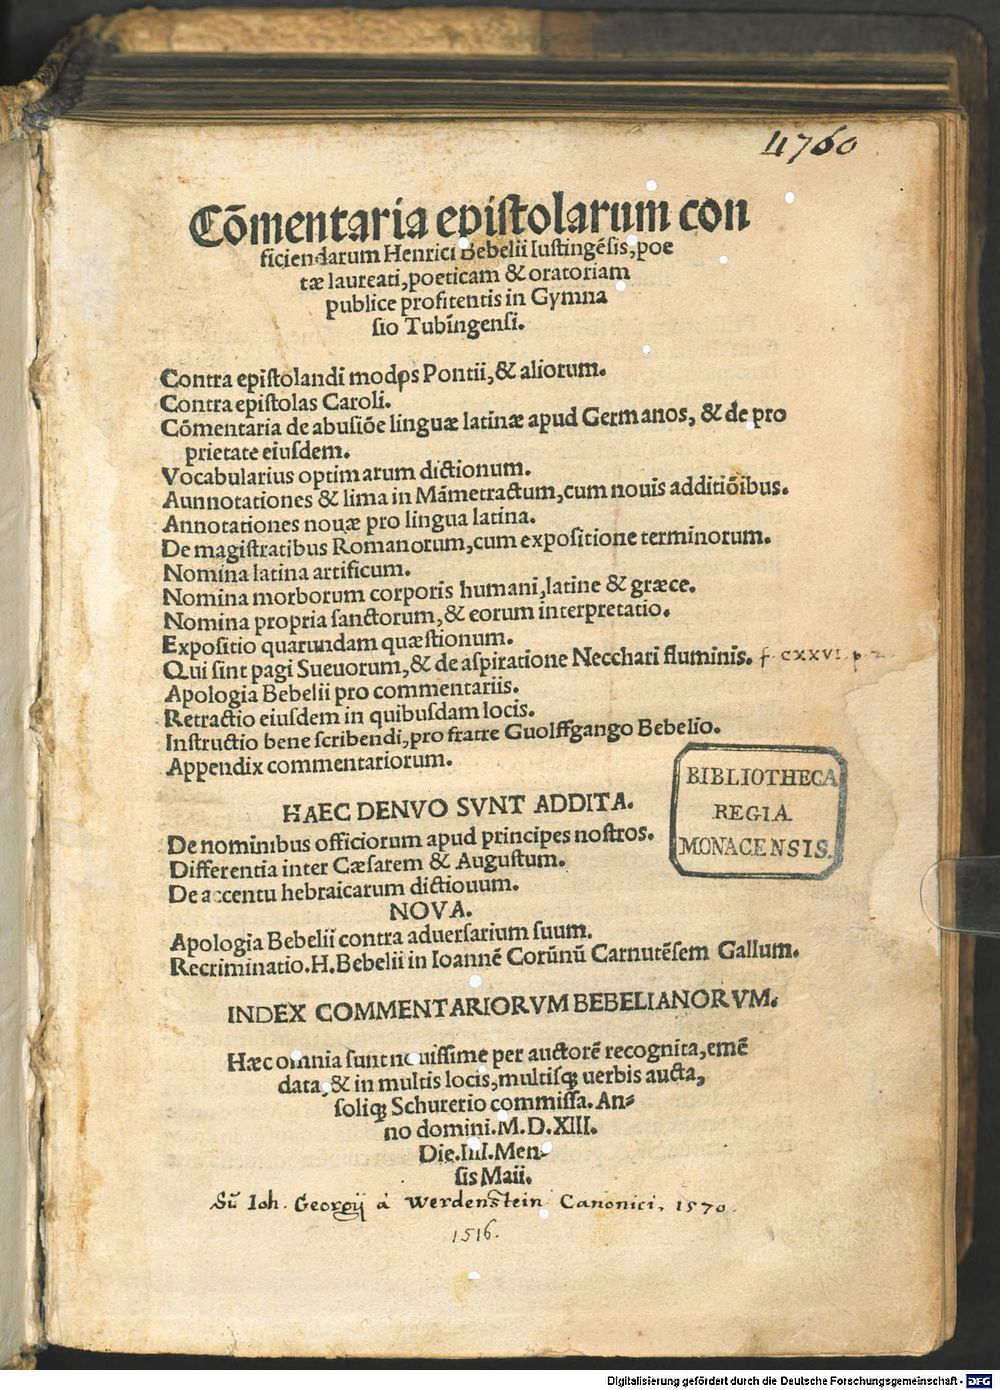 4760
Cōmentaria epistolarum con
ficiendarum Henrici Bebelii Iustingēsis, poe
tæ laureati, poeticam & oratoriam
publice profitentis in Gymna
sio Tubīngensi.
Contra epistolandi modos Pontii, & aliorum.
Contra epistolas Caroli.
Cōmentaria de abusiōe linguæ latinæ apud Germanos, & de pro
prietate eiusdem.
Vocabularius optimarum dictionum.
Aunnotationes & lima in Māmetractum, cum nouis additiōibus.
Annotationes nouæ pro lingua latina.
De magistratibus Romanorum, cum expositione terminorum.
Nomina latina artificum.
Nomina morborum corporis humani, latine & græce.
Nomina propria sanctorum, & eorum interpretatio.
Expositio quarundam quæstionum.
Qui sint pagi Sueuorum, & de aspiratione Necchari fluminis. f. CXXVI. p. 2.
Apologia Bebelii pro commentariis.
Retractio eiusdem in quibusdam locis.
Instructio bene scribendi, pro fratre Guolffgango Bebelio.
Appendix commentariorum.
HAEC DENVO SVNT ADDITA.
De nominibus officiorum apud principes nostros.
Differentia inter Cæsarem & Augustum.
De accentu hebraicarum dictiouum.
NOVA.
Apologia Bebelii contra aduersarium suum.
Recriminatio. H. Bebelii in Ioannē Corūnū Carnutēsem Gallum.
BIBLIOTHECA
REGIA
MONACENSIS.
INDEX COMMENTARIORVM BEBELIANORVM.
Hæc omnia sunt nouissime per auctorē recognita, emē
data, & in multis locis, multisq; uerbis aucta,
soliq; Schurerio commissa. An-
no domini. M. D. XIII.
Die. III. Men-
sis Maii.
Sū Ioh. Georgij à Werdenstein Canonici, 1570.
1516.
Digitalisierung gefördert durch die Deutsche Forschungsgemeinschaft - DFG